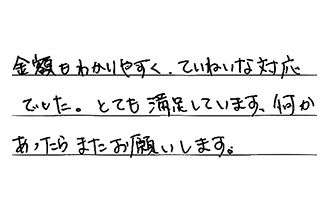 金額もわかりやすく、ていねいな対応
でした。とても満足しています、何か
あったらまたお願いします。